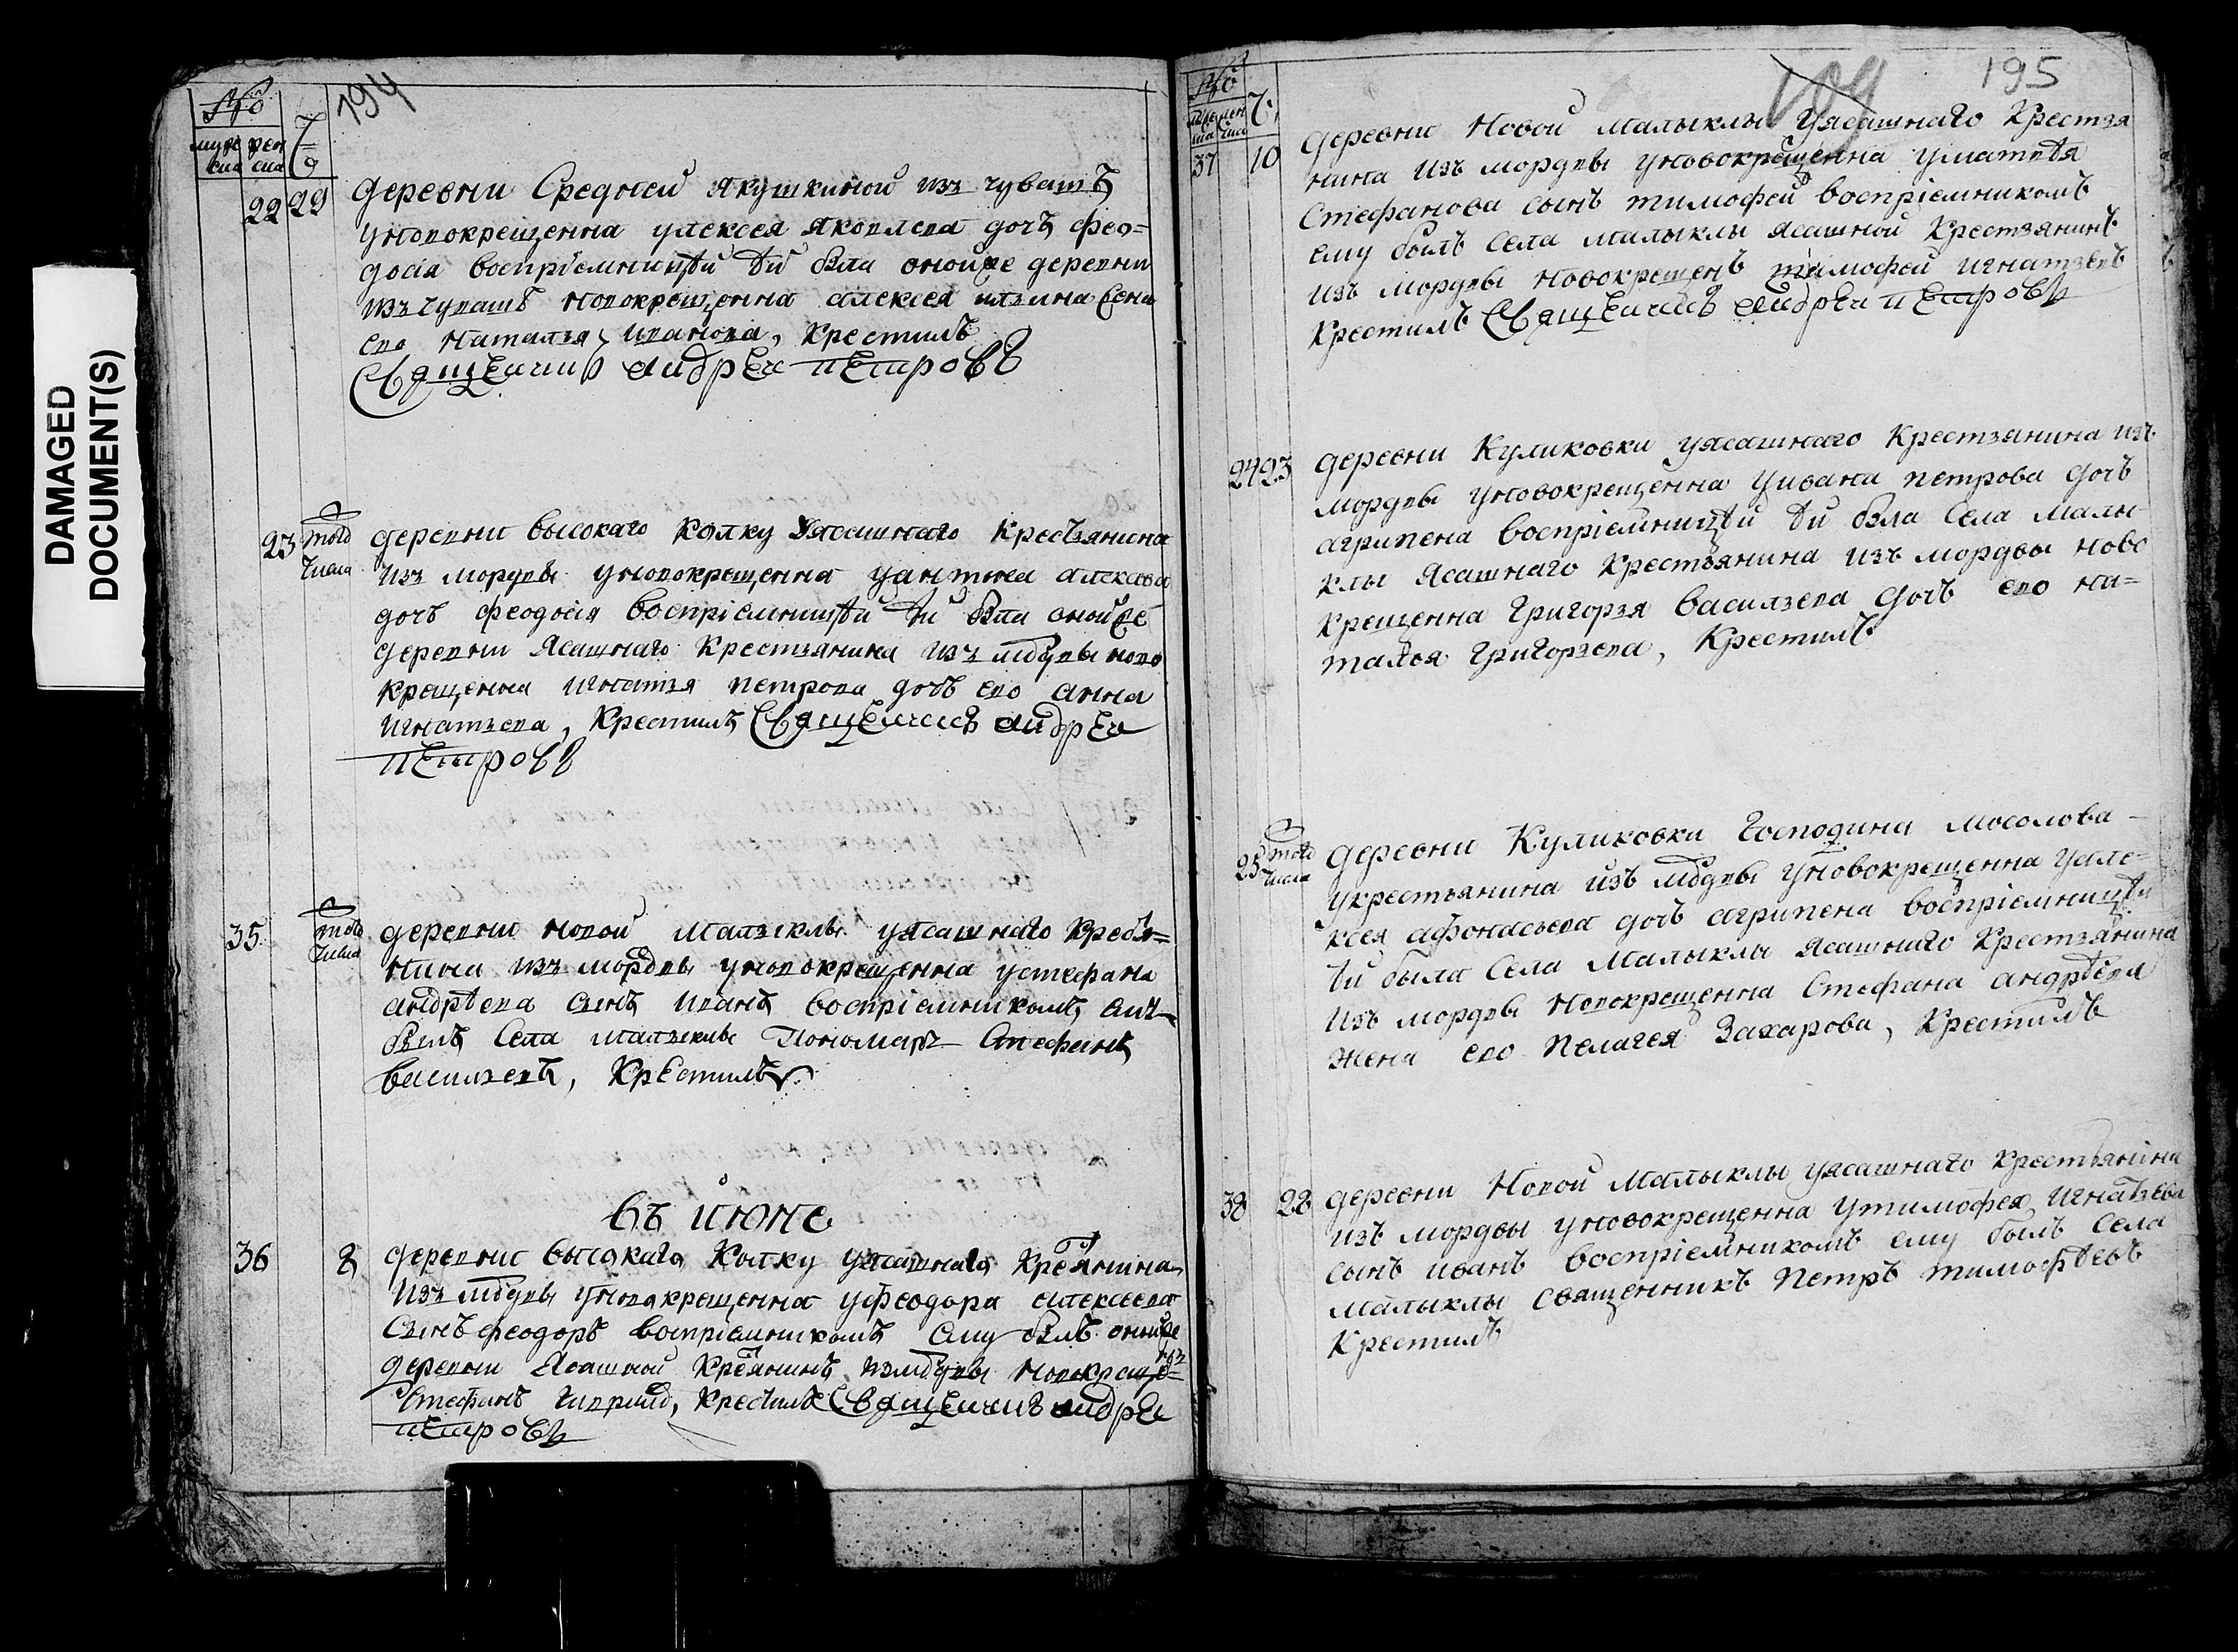 DAMAGED
DOCUMENT(S)
194
муж жен
ска ска
22 29 деревни Средней якушкиной изъ чувашъ
уновокрещенна уалексея яковлева дочь фео=
досiя воспрiемницѣй ѣй была онойже деревни
изъ чувашъ новокрещенна алексея жена
ево наталья иванова, крестилъ
Священникъ андрей петровъ
23 того числа деревни высокаго колку уясашнаго крестьянина
изъ мордвы уновокрещенна
дочь феодосiя воспрiемницѣй ѣй была онойже
деревни ясашнаго крестьянина изъ мордвы ново
крещенна игнатья петрова дочь ево анна
игнатьева, крестилъ Священникъ андрей
петровъ
35 того числа деревни новой малыклы уясашнаго крестья=
нина изъ мордвы уновокрещенна устефана
андрѣева сынъ иванъ воспрiемникомъ ему
былъ села малыклы пономарь стефанъ
васильевъ, крестилъ
въ июне
36 8 деревни высокаго колку уясашнаго крестьянина
изъ мордвы уновокрещенна уфеодора алексеева
сынъ феодоръ воспрiемникомъ ему былъ онойже
деревни ясашной крестьянинъ измордвы новокреще=
стефанъ крестилъ Священникъ андрей
петровъ
109 195
37 10 деревни Новой малыклы уясашнаго крестья
нина изъ мордвы уновокрещенна уматвѣя
Стефанова сынъ тимофей воспрiемникомъ
ему былъ села малыклы ясашной крестьянинъ
изъ мордвы новокрещенъ тимофей игнатьевъ
крестилъ Священникъ андрей петровъ
24 23 деревни Куликовки уясашнаго крестьянина изъ
мордвы уновокрещенна уивана петрова дочь
агрипена воспрiемницѣй ѣй была села малы
клы ясашнаго крестьянина изъ мордвы ново
крещенна григорья васильева дочь ево на=
талья григорьева, крестилъ
25 того числа деревни Куликовки господина мосолова
укрестьянина изъ мордвы уновокрещенна уале=
ксея афонасьева дочь агрипена воспрiемницѣй
ѣй была села малыклы ясашнаго крестьянина
изъ мордвы новокрещенна Стефана андрѣева
жена ево пелагея захарова, крестилъ
38 28 деревни Новой малыклы уясашнаго крестьянина
изъ мордвы уновокрещенна утимофея игнатьева
сынъ иванъ воспрiемникомъ ему былъ села
малыклы священникъ петръ тимофѣевъ
крестилъ